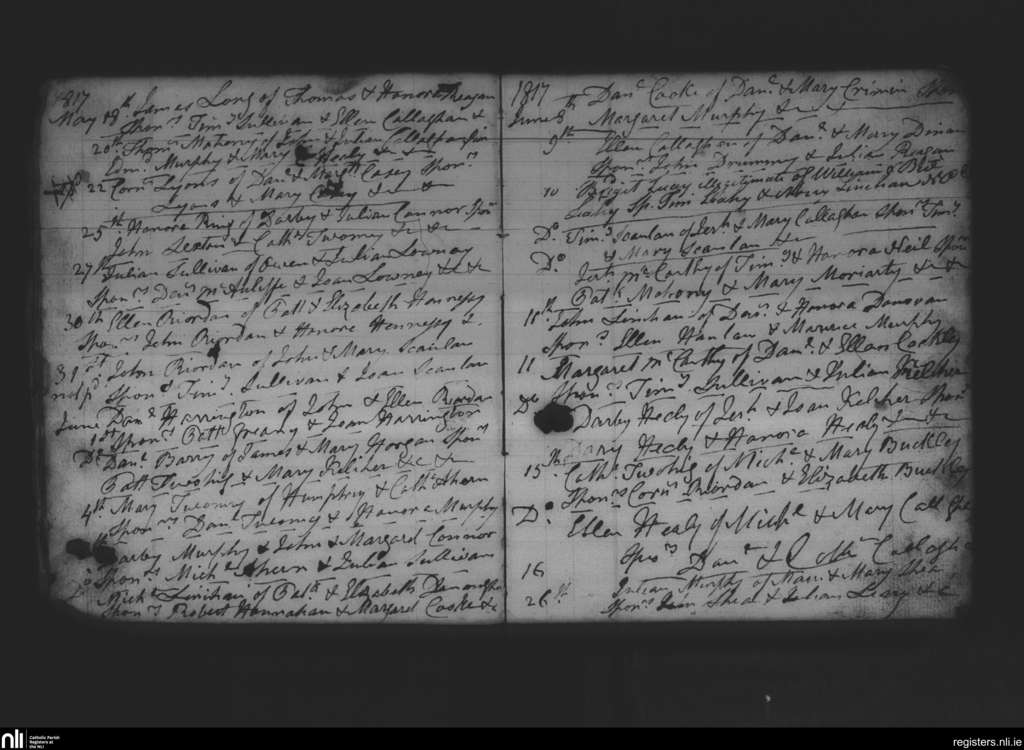 1817
May 18th James Long of Thomas & Honora Reagan
Sponrs Timy Sullivan & Ellen Callaghan &
20th Thoms Mahony of John & Julian Callaghan
Edmd Murphy & Mary Healy & &
22 Corns Lyons of Danl & Margt Casey Sponrs
Lyons & Mary Casey & &
25th Honora Ring of Darby & Julian Connor Spon
John Sexton & Cathe Twomey & &
27th Julian Sullivan of Owen & Julian Lowney
Sponrs Danl McAuliffe & Joan Lowney &c &
30th Ellen Riordan of Patt & Elizabeth Hennessy
Sponrs John Riordan & Honora Hennessy &
31st John Riordan of John & Mary Scanlan
Sponrs Timy Sullivan & Joan Scanlan
June Danl Harrington of John & Ellen Riordan
1st Sponrs Patk & Joan Harrington
Do Danl Barry of James & Mary Horgan Sponrs
Patt Twohig & Mary Kelcher &c &
4th Mary Twomey of Humphry & Cathe Ahern
Sponrs Danl Twomey & Honora Murphy
Darby Murphy & John & Margaret Connor
Sponrs Michl Ahern & Julian Sullivan
Michl Linehan of Patk & Elizabeth
Sponrs Robert Hannahan & Margaret Cooke &c
1817
June 8th Danl Cooke of Danl & Mary Crimin Spon
Margaret Murphy & &
9th Ellen Callaghan of Danl & Mary Dinan
Sponrs John Drummy & Julian Reagan
10 Brigit Illegitimate of William
Leahy Sp. Tim Leahy & Linehan
Do Timy Scanlan of Jerh & Mary Callaghan Sponrs Timy
& Mary Scanlan &c
Do Jerh McCarthy of Timy & Honora Neil Sponrs
Patk Mahony & Mary Moriarty & &
11th John Linehan of Danl & Honora Donovan
Sponrs Ellen Hanlan & Maurice Murphy
11 Margaret McCarthy of Danl & Ellan Cockley
Sponrs Timy Sullivan & Julian Kelcher
Do Darby Healy of Jerh & Joan Kelcher Sponrs
Healy & Hanora Healy & &
15th Cathe Twohig of Michl & Mary Buckley
Sponrs Corns Riordan & Elizabeth Buckley
Do Ellen Healy of Michl & Mary
Sponrs Danl &
16
Julian Murphy of & Mary Shea
26th Sponrs Shea & Julian Leary & c
nli Catholic Parish
Registers at
the NLI
registers.nli.ie